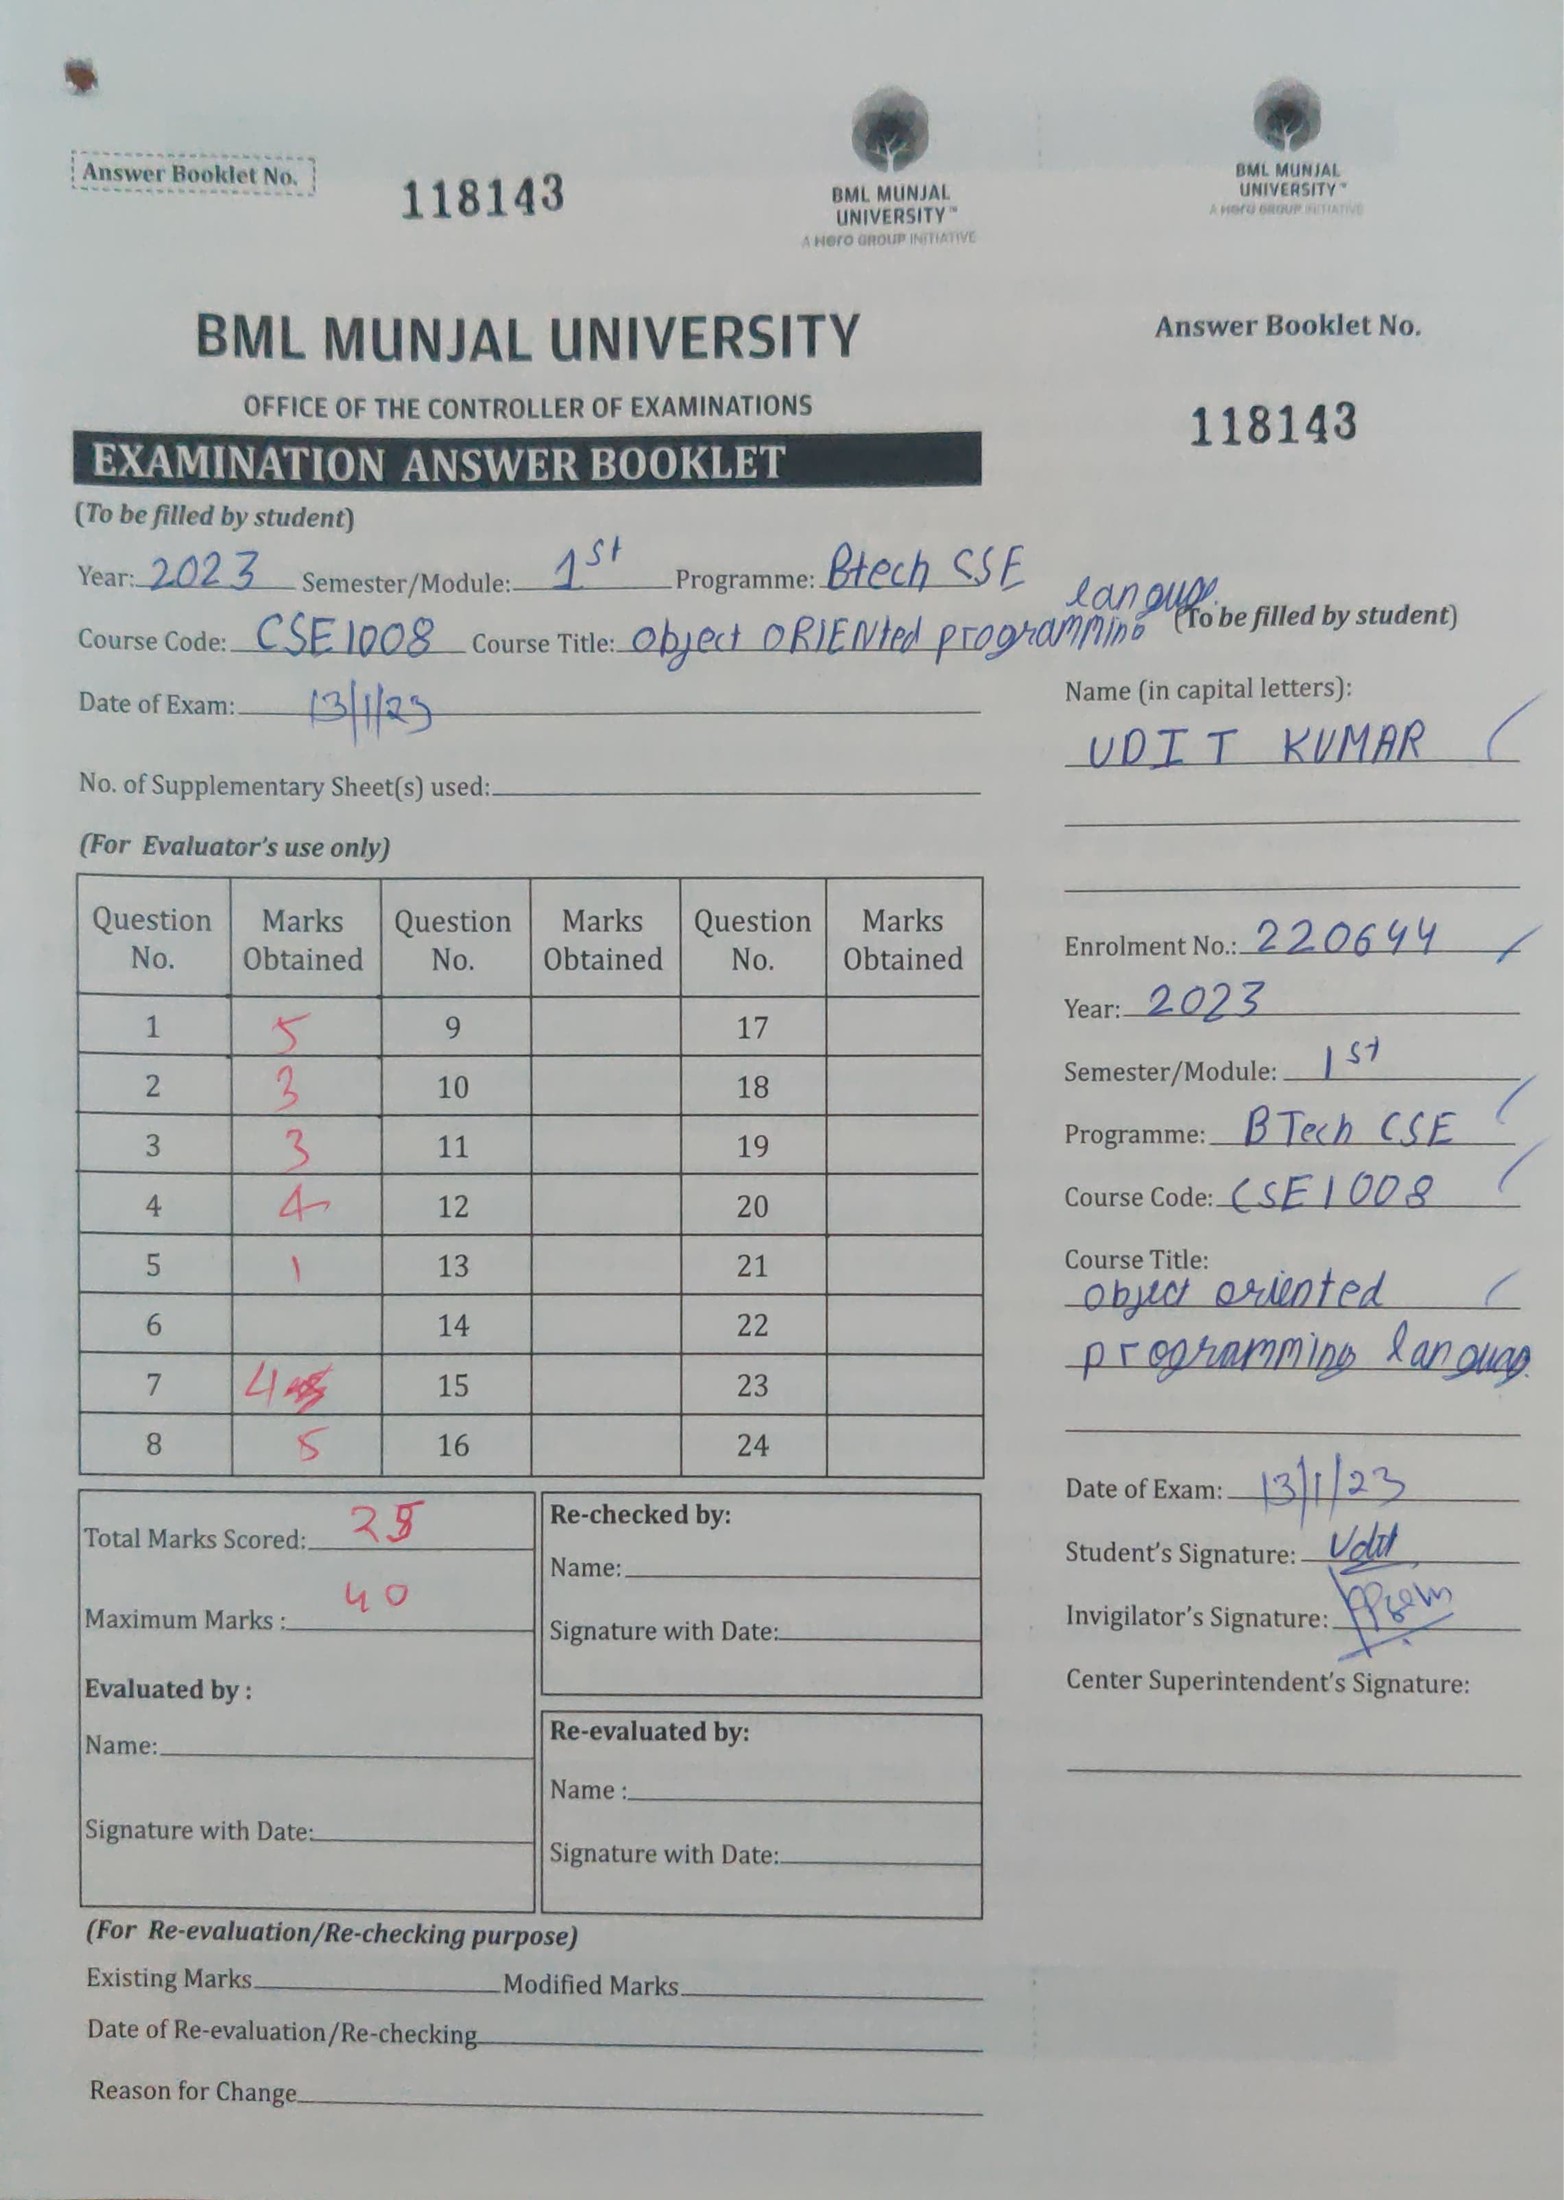 Answer Booklet No.
118143
BML MUNJAL
UNIVERSITY™
A Hero GROUP INITIATIVE
BML MUNJAL UNIVERSITY
OFFICE OF THE CONTROLLER OF EXAMINATIONS
EXAMINATION ANSWER BOOKLET
(To be filled by student)
Year: 2023 Semester/Module: 1st Programme: Btech CSE
Course Code: CSE1008 Course Title: Object ORIENted programming
Date of Exam: 13/1/23
No. of Supplementary Sheet(s) used:
(For Evaluator's use only)
Question No. Marks Obtained Question No. Marks Obtained Question No. Marks Obtained
1 5 9 17
2 3 10 18
3 3 11 19
4 4 12 20
5 1 13 21
6 14 22
7 4 15 23
8 5 16 24
Total Marks Scored: 25
Maximum Marks : 40
Evaluated by :
Name:
Signature with Date:
Re-checked by:
Name:
Signature with Date:
Re-evaluated by:
Name :
Signature with Date:
(For Re-evaluation/Re-checking purpose)
Existing Marks Modified Marks
Date of Re-evaluation/Re-checking
Reason for Change
BML MUNJAL
UNIVERSITY™
A Hero GROUP INITIATIVE
Answer Booklet No.
118143
(To be filled by student)
Name (in capital letters):
UDIT KUMAR
Enrolment No.: 220644
Year: 2023
Semester/Module: 1st
Programme: BTech CSE
Course Code: CSE1008
Course Title:
object oriented
programming
Date of Exam: 13/1/23
Student's Signature: Udit
Invigilator's Signature:
Center Superintendent's Signature: